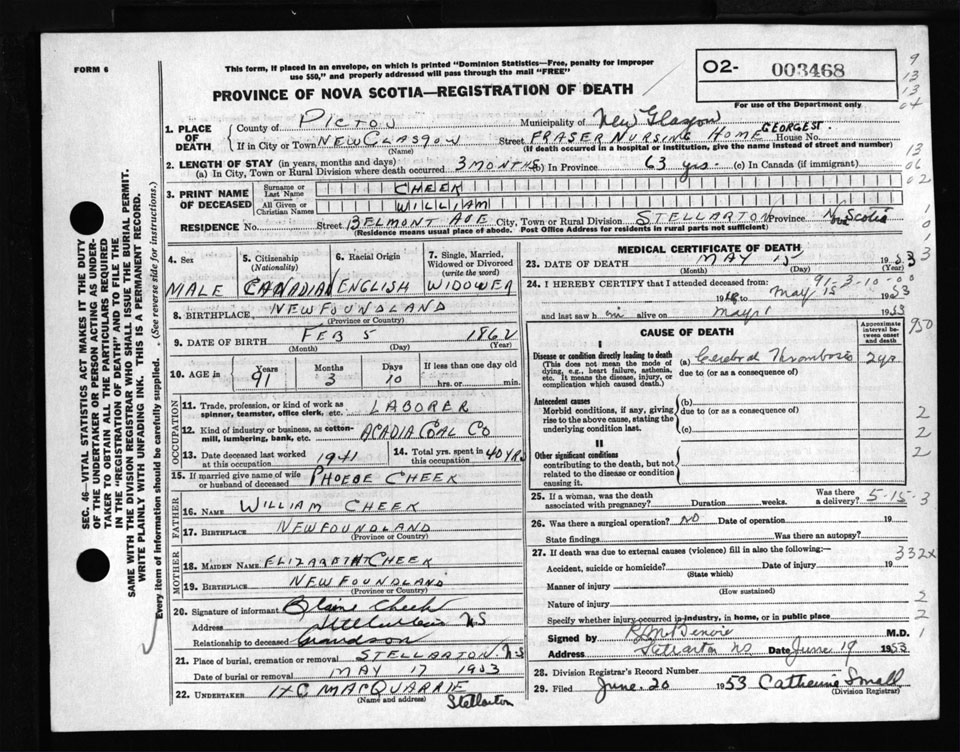 FORM 6
This form, if placed in an envelope, on which is printed "Dominion Statistics—Free, penalty for improper
use $50," and properly addressed will pass through the mail "FREE"
PROVINCE OF NOVA SCOTIA—REGISTRATION OF DEATH
O2- 003468
For use of the Department only
9
13
13
04
1. PLACE OF DEATH
County of PICTOU Municipality of New Glasgow
If in City or Town NEW GLASGOW Street FRASER NURSING HOME GEORGE ST. House No.
(Name) (If death occurred in a hospital or institution, give the name instead of street and number)
13
06
02
2. LENGTH OF STAY (in years, months and days)
(a) In City, Town or Rural Division where death occurred 3 MONTHS (b) In Province 63 yrs. (c) In Canada (if immigrant)
3. PRINT NAME OF DECEASED
Surname or Last Name CHEEK
All Given or Christian Names WILLIAM
RESIDENCE No. Street BELMONT AVE City, Town or Rural Division STELLARTON Province N. Scotia
(Residence means usual place of abode. Post Office Address for residents in rural parts not sufficient)
4. Sex
MALE
5. Citizenship
(Nationality)
CANADIAN
6. Racial Origin
ENGLISH
7. Single, Married,
Widowed or Divorced
(write the word)
WIDOWER
8. BIRTHPLACE NEWFOUNDLAND
(Province or Country)
9. DATE OF BIRTH FEB 5 1862
(Month) (Day) (Year)
10. AGE in Years Months Days If less than one day old
91 3 10 hrs. or min.
OCCUPATION
11. Trade, profession, or kind of work as
spinner, teamster, office clerk, etc. LABORER
12. Kind of industry or business, as cotton-
mill, lumbering, bank, etc. ACADIA COAL CO
13. Date deceased last worked
at this occupation 1941
14. Total yrs. spent in
this occupation 40 YRS
15. If married give name of wife
or husband of deceased PHOEBE CHEEK
FATHER
16. NAME WILLIAM CHEEK
17. BIRTHPLACE NEWFOUNDLAND
(Province or Country)
MOTHER
18. MAIDEN NAME ELIZABETH CHEEK
19. BIRTHPLACE NEWFOUNDLAND
(Province or Country)
20. Signature of informant Blaine Cheek
Address Stellarton NS
Relationship to deceased Grandson
21. Place of burial, cremation or removal STELLARTON, N.S
Date of burial or removal MAY 17 1953
22. UNDERTAKER MACQUARRIE
(Name and address) Stellarton
MEDICAL CERTIFICATE OF DEATH
23. DATE OF DEATH MAY 15 1953
(Month) (Day) (Year)
24. I HEREBY CERTIFY that I attended deceased from 91-3-10-0
19 to May 15 1953
and last saw him alive on May 1 1953
CAUSE OF DEATH
Approximate
interval be-
tween onset
and death
950
I
Disease or condition directly leading to death
(This does not mean the mode of
dying, e.g., heart failure, asthenia,
etc. It means the disease, injury, or
complication which caused death.)
(a) Cerebral Thrombosis 2 yrs
due to (or as a consequence of)
Antecedent causes
Morbid conditions, if any, giving
rise to the above cause, stating the
underlying condition last.
(b)
due to (or as a consequence of)
(c)
II
Other significant conditions
contributing to the death, but not
related to the disease or condition
causing it.
2
2
2
25. If a woman, was the death
associated with pregnancy? Duration weeks. Was there
a delivery? 5-15-3
26. Was there a surgical operation? NO Date of operation 19
State findings Was there an autopsy?
27. If death was due to external causes (violence) fill in also the following:— 332X
Accident, suicide or homicide? Date of injury 19
(State which)
Manner of injury
(How sustained)
Nature of injury
Specify whether injury occurred in industry, in home, or in public place
Signed by M.D.
Address Stellarton NS Date June 19 1953
28. Division Registrar's Record Number
29. Filed June 20 1953 Catherine Small
(Division Registrar)
SEC. 46—VITAL STATISTICS ACT MAKES IT THE DUTY
OF THE UNDERTAKER OR PERSON ACTING AS UNDER-
TAKER TO OBTAIN ALL THE PARTICULARS REQUIRED
IN THE "REGISTRATION OF DEATH" AND TO FILE THE
SAME WITH THE DIVISION REGISTRAR WHO SHALL ISSUE THE BURIAL PERMIT.
WRITE PLAINLY WITH UNFADING INK. THIS IS A PERMANENT RECORD.
Every item of information should be carefully supplied. (See reverse side for instructions.)